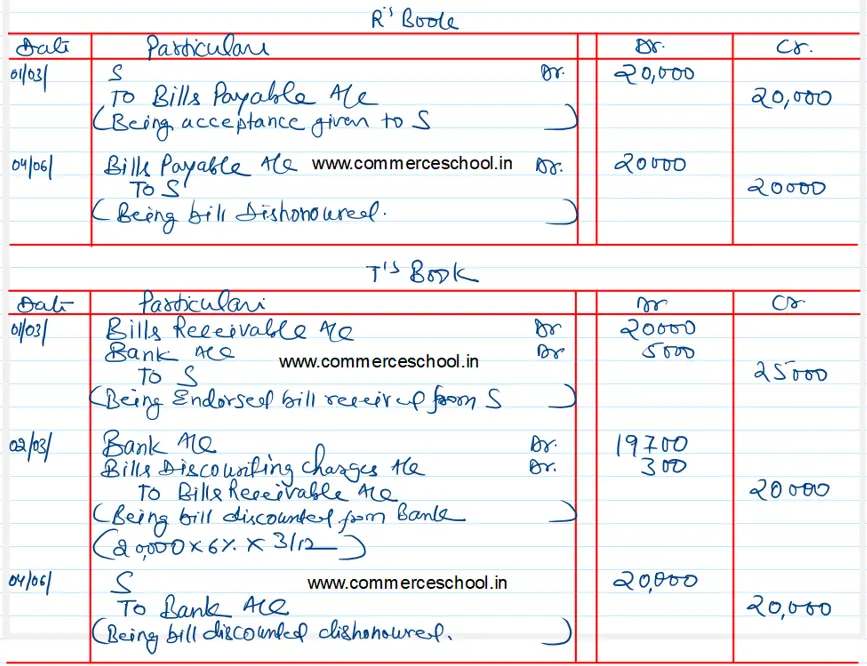 R's Book
Date Particulars Dr. Cr.
01/03/ S Dr. 20,000
To Bills Payable A/c 20,000
(Being acceptance given to S)
04/06/ Bills Payable A/c www.commerceschool.in Dr. 20000
To S 20000
(Being bill Dishonoured.)
T's Book
Date Particulars Dr Cr.
01/03/ Bills Receivable A/c Dr 20000
Bank A/c Dr 5000
www.commerceschool.in
To S 25000
(Being Endorsed bill received from S)
02/03/ Bank A/c Dr. 19700
Bills Discounting charges A/c Dr. 300
To Bills Receivable A/c 20000
(Being bill discounted from Bank)
(20,000 x 6% x 3/12)
04/06/ S www.commerceschool.in 20,000
To Bank A/c 20,000
(Being bill discounted dishonoured.)